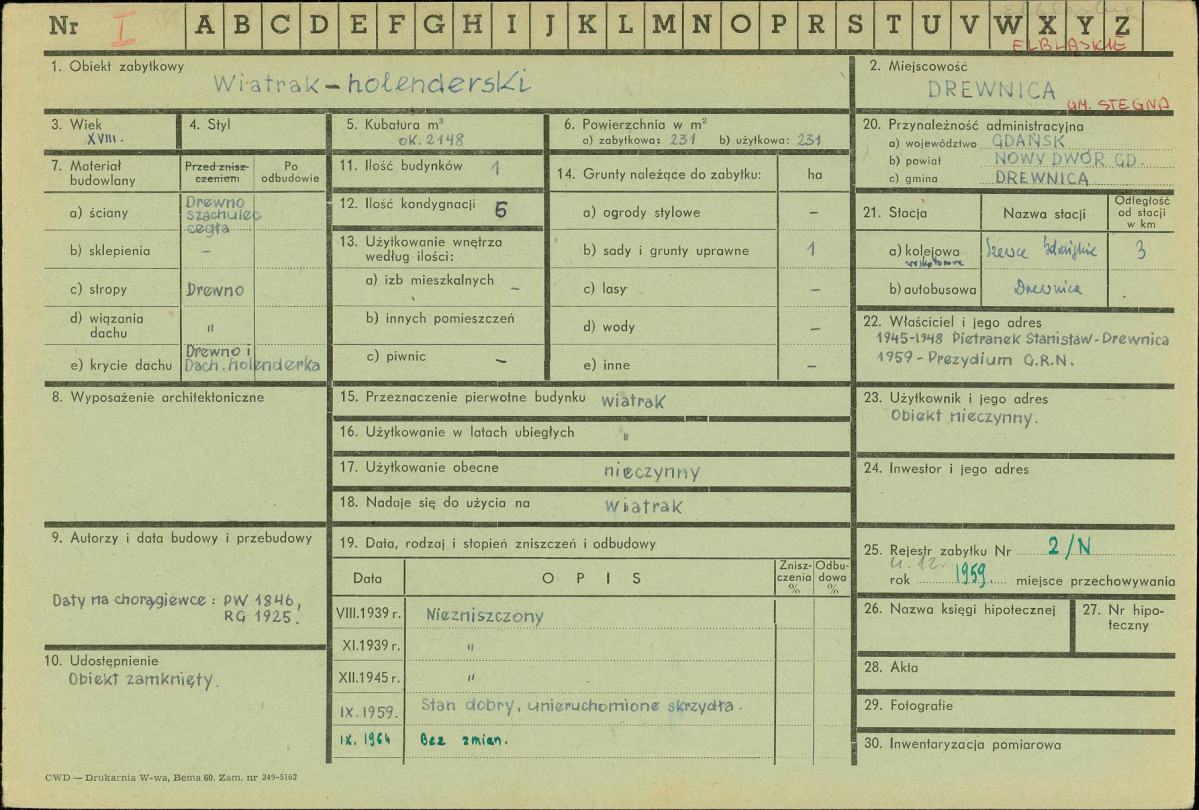 Nr I A B C D E F G H I J K L M N O P R S T U V W X Y Z
ELBLĄSKIE
1. Obiekt zabytkowy
Wiatrak - holenderski
2. Miejscowość
DREWNICA
GM. STEGNA
3. Wiek
XVIII.
4. Styl
5. Kubatura m³
ok. 2148
6. Powierzchnia w m²
a) zabytkowa: 231 b) użytkowa: 231
20. Przynależność administracyjna
a) województwo GDAŃSK
b) powiat NOWY DWÓR GD.
c) gmina DREWNICA
7. Materiał budowlany
Przed znisz-
czeniem
Po
odbudowie
a) ściany
Drewno
szachulec
cegła
b) sklepienia –
c) stropy Drewno
d) wiązania
dachu "
e) krycie dachu
Drewno i
Dach. holenderka
11. Ilość budynków 1
12. Ilość kondygnacji 5
13. Użytkowanie wnętrza
według ilości:
a) izb mieszkalnych –
b) innych pomieszczeń
c) piwnic –
14. Grunty należące do zabytku: ha
a) ogrody stylowe –
b) sady i grunty uprawne 1
c) lasy –
d) wody –
e) inne –
21. Stacja
Nazwa stacji
Odległość
od stacji
w km
a) kolejowa Szewce Gdańskie 3
wąskotorowa
b) autobusowa Drewnica
22. Właściciel i jego adres
1945-1948 Pietranek Stanisław - Drewnica
1959 - Prezydium G.R.N.
8. Wyposażenie architektoniczne
15. Przeznaczenie pierwotne budynku wiatrak
16. Użytkowanie w latach ubiegłych "
17. Użytkowanie obecne nieczynny
18. Nadaje się do użycia na wiatrak
23. Użytkownik i jego adres
Obiekt nieczynny.
24. Inwestor i jego adres
9. Autorzy i data budowy i przebudowy
Daty na chorągiewce: PW 1846,
RG 1925.
10. Udostępnienie
Obiekt zamknięty.
19. Data, rodzaj i stopień zniszczeń i odbudowy
Data
OPIS
Znisz-
czenia
%
Odbu-
dowa
%
VIII.1939 r. Niezniszczony
XI.1939 r. "
XII.1945 r. "
IX.1959. Stan dobry, unieruchomione skrzydła.
IX. 1964 Bez zmian.
25. Rejestr zabytku Nr 2/N
rok 1959. miejsce przechowywania
26. Nazwa księgi hipotecznej
27. Nr hipo-
teczny
28. Akta
29. Fotografie
30. Inwentaryzacja pomiarowa
CWD — Drukarnia W-wa, Bema 60. Zam. nr 349-5162